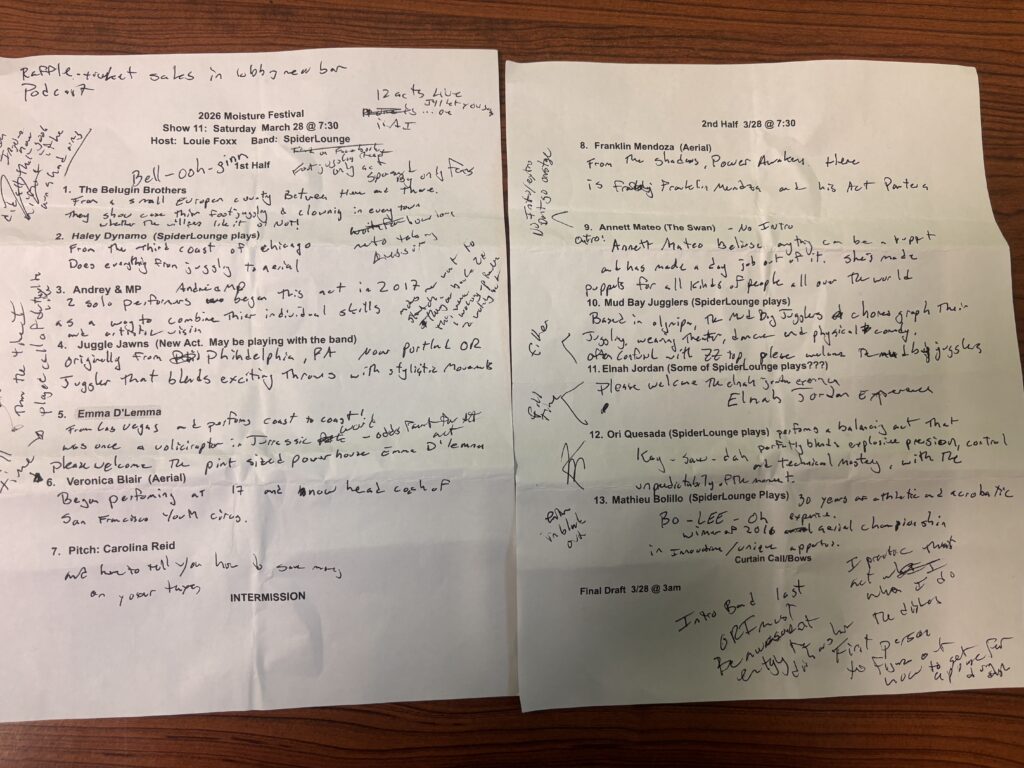 Raffle - ticket sales in lobby near bar
Podcast
2026 Moisture Festival
Show 11: Saturday March 28 @ 7:30
Host: Louie Foxx Band: SpiderLounge
12 acts Live
is AI
Bell-ooh-ginn
1st Half
1. The Belugin Brothers
From a small European county Between Here and There.
They show case Thier foot juggling & clowning in every town
whether the villagers like it or Not!
2. Haley Dynamo (SpiderLounge plays)
From the Third coast of chicago
Does everything from juggly to aerial
3. Andrey & MP
2 solo performers began This act in 2017
as a way to combine Thier individual skills
and artistic visin
4. Juggle Jawns (New Act. May be playing with the band)
originally From Philhdelphia, PA Now Portland OR
Juggler that blends exciting Throws with stylistic Movements
5. Emma D'Lemma
From Las Vegas and performs coast to coast!
was once a velociraptor in Jurassic
please welcome The pint sized powerhouse Emma D'lemma
6. Veronica Blair (Aerial)
Began performing at 17 and know head coach of
San Francisco Youth circus.
7. Pitch: Carolina Reid
here to tell you how to save money
on your taxes
INTERMISSION
2nd Half 3/28 @ 7:30
8. Franklin Mendoza (Aerial)
From the shadows, Power Awakens. there
is Franklin Mendoza and his Act Pantera
9. Annett Mateo (The Swan) - No Intro
outro: Annett Mateo Believes anything can be a puppet
and has made a day job out of it. she's made
puppets for all kinds of people all over The world
10. Mud Bay Jugglers (SpiderLounge plays)
Based in olympia, The Mud Bay Jugglers choreograph Their
Juggling, weaving theater, dance and physical comedy.
often confused with ZZ top, please welcome The mud bay jugglers
Either
11. Elnah Jordan (Some of SpiderLounge plays???)
Please welcome The elnah jordan
Elnah Jordan Experience
Fill
Time
12. Ori Quesada (SpiderLounge plays) performs a balancing act That
Kay - Saw - dah perfectly blends explosive precision, control
and technical mastery, with The
unpredictability of The moment.
13. Mathieu Bolillo (SpiderLounge Plays) 30 years as athletic and acrobatic
Bo - LEE - Oh experience.
winner of 2016 aerial championship
in Innovative / unique apparatus.
in black
out
Curtain Call/Bows
Final Draft 3/28 @ 3am
Intro Band last
ORI must
I practice That
act when I do
The dishes
First person
to figure out
how to get